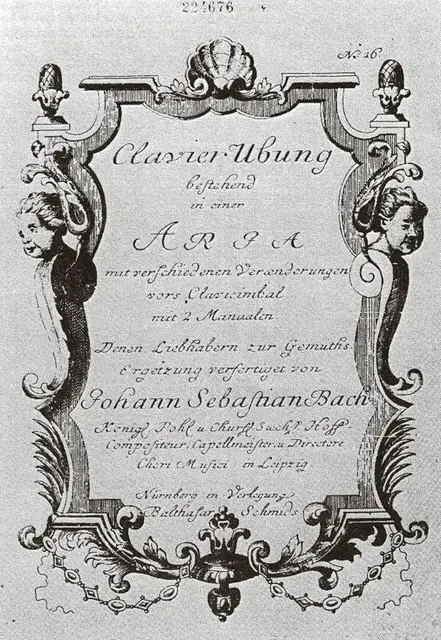 224676
No. 16
Clavier Ubung
bestehend
in einer
ARIA
mit verschiedenen Verænderungen
vors Clavicimbal
mit 2 Manualen.
Denen Liebhabern zur Gemüths-
Ergetzung verfertiget von
Johann Sebastian Bach
Königl. Pohl. u. Churfl. Sæchs. Hoff-
Compositeur, Capellmeister, u. Directore
Chori Musici in Leipzig.
Nürnberg in Verlegung
Balthasar Schmids